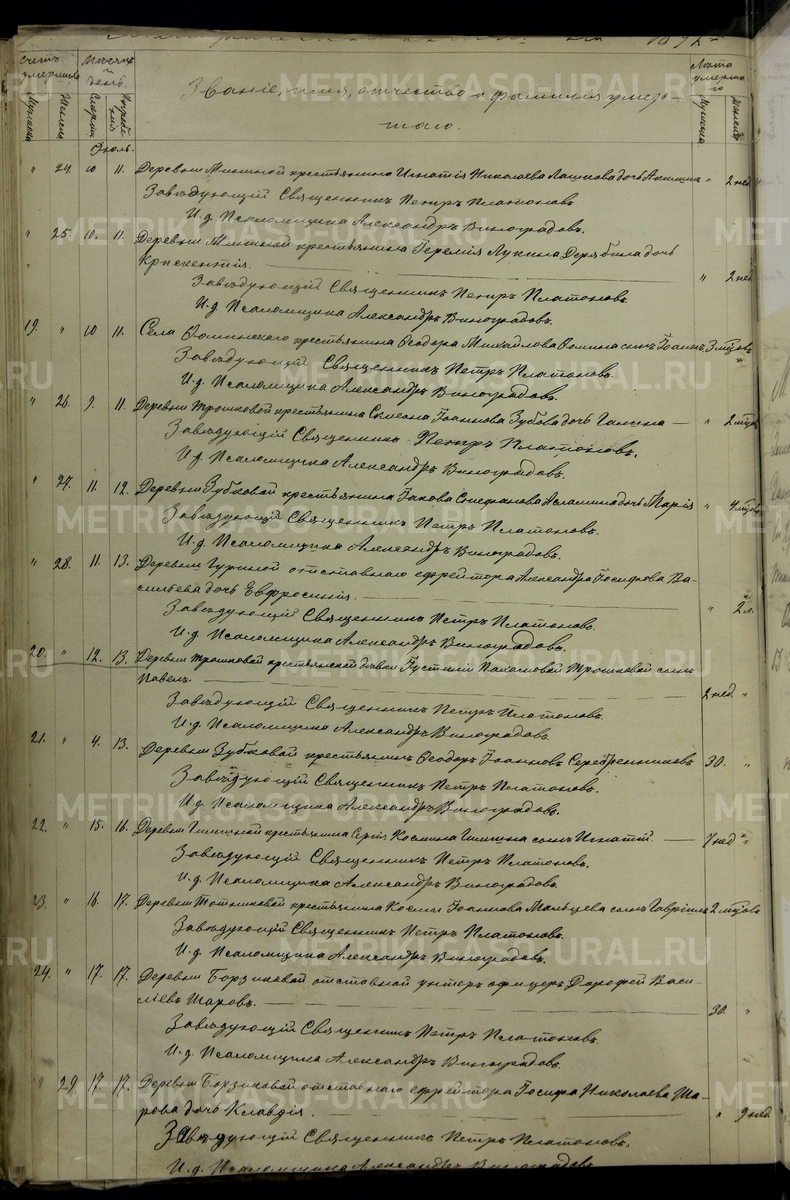 счетъ умершихъ
Мѣсяцъ и день
Звание, имя, отчество и фамилия умер-
шаго.
Лѣта умершаго
Мужеска
Женска
Смерти
Погребенія
Мужеска
Женска
Іюль.
" 24. 10 11. Деревни Мининой крестьянина Игнатія Николаева дочь " 2 нед.
Завѣдующій Священникъ Петръ Платоновъ
И.д. Псаломщика Александръ Виноградовъ.
" 25. 10. 11. Деревни Мининой крестьянина Іеремія Лукина Дерябина дочь
Крискентія. " 2 нед.
Завѣдующій Священникъ Петръ Платоновъ.
И.д. Псаломщика Александръ Виноградовъ.
19. " 10 11. Села Фоминскаго крестьянина Ѳеодора Михайлова Фомина сынъ Іоаннъ. 3 "
Завѣдующій Священникъ Петръ Платоновъ.
И.д. Псаломщика Александръ Виноградовъ.
" 26. 9. 11. Деревни Трошковой крестьянина Симеона Іоаннова Зубова дочь " 2
Завѣдующій Священникъ Петръ Платоновъ.
И.д. Псаломщика Александръ Виноградовъ.
" 27. 11. 12. Деревни Зубковой крестьянина Іакова Стефанова дочь Марія " 4
Завѣдующій Священникъ Петръ Платоновъ.
И.д. Псаломщика Александръ Виноградовъ.
" 28. 11. 13. Деревни Гуриной отставнаго ефрейтора Александра Іосифова Ва-
сильева дочь Евфросинія. " 2 л.
Завѣдующій Священникъ Петръ Платоновъ.
И.д. Псаломщика Александръ Виноградовъ.
20. " 12. 13. Деревни Трошковой крестьянской дѣвки Пахомовой Трошковой сынъ
Павелъ. 2 нед. "
Завѣдующій Священникъ Петръ Платоновъ.
И.д. Псаломщика Александръ Виноградовъ.
21. " 4. 13. Деревни Зубковой крестьянинъ Ѳеодоръ Іоанновъ Серебренниковъ 30. "
Завѣдующій Священникъ Петръ Платоновъ.
И.д. Псаломщика Александръ Виноградовъ.
22. " 15. 16. Деревни крестьянина Сергія Космина сынъ Игнатій. 7 нед. "
Завѣдующій Священникъ Петръ Платоновъ.
И.д. Псаломщика Александръ Виноградовъ.
23. " 16. 17. Деревни крестьянина Космы Іоаннова Мальцева сынъ Гавріилъ 2
Завѣдующій Священникъ Петръ Платоновъ.
И.д. Псаломщика Александръ Виноградовъ.
24. " 17. 17. Деревни Борзиковой отставной унтеръ офицеръ Дорофей Васи-
ліевъ Шаровъ. 30. "
Завѣдующій Священникъ Петръ Платоновъ.
И.д. Псаломщика Александръ Виноградовъ.
" 29. 17 17. Деревни Борзиковой отставнаго ефрейтора Іосифа Николаева Ша-
рова дочь Клавдія. " 9 нед.
Завѣдующій Священникъ Петръ Платоновъ.
И.д. Псаломщика Александръ Виноградовъ
METRIKI.GASO-URAL.RU